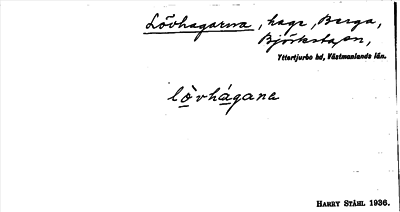 Lövhagarna, hagr, Berga,
Björkstaen,
Yttertjurbo hd, Västmanlands län.
lòvhágana
HARRY STÅHL 1936.